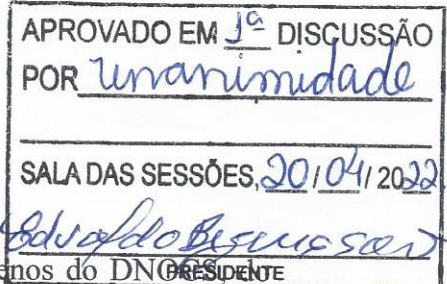 APROVADO EM 1ª DISCUSSÃO
POR unanimidade
SALA DAS SESSÕES, 20/04/2022
enos do DNOCS, do
PRESIDENTE